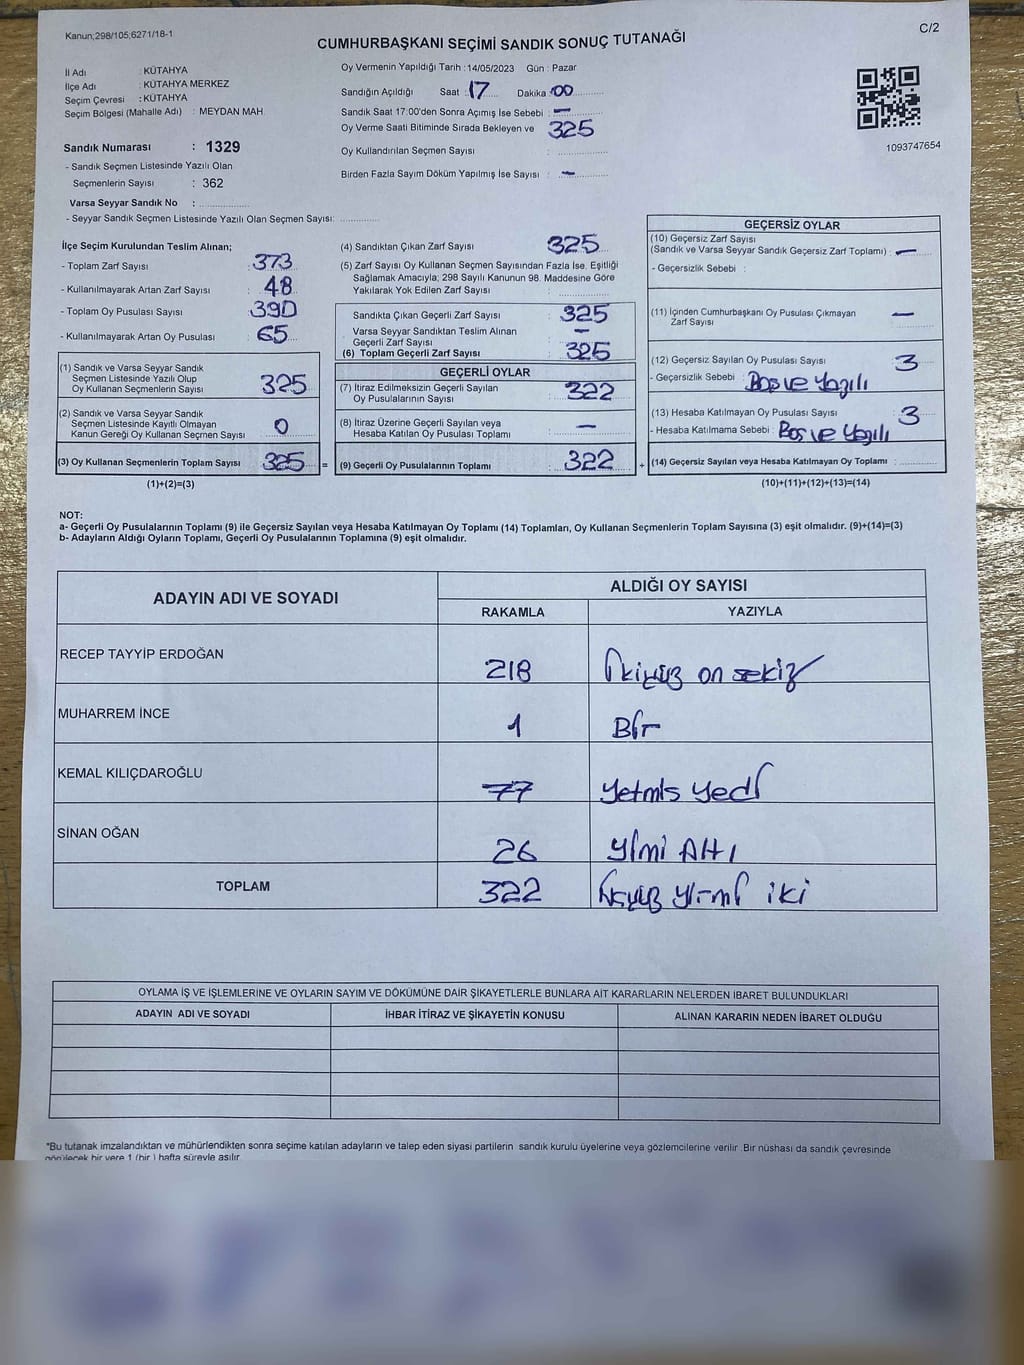 Kanun;298/105;6271/18-1
C/2
CUMHURBAŞKANI SEÇİMİ SANDIK SONUÇ TUTANAĞI
İl Adı : KÜTAHYA
İlçe Adı : KÜTAHYA MERKEZ
Seçim Çevresi : KÜTAHYA
Seçim Bölgesi (Mahalle Adı) : MEYDAN MAH
Sandık Numarası : 1329
- Sandık Seçmen Listesinde Yazılı Olan
Seçmenlerin Sayısı : 362
Varsa Seyyar Sandık No :
- Seyyar Sandık Seçmen Listesinde Yazılı Olan Seçmen Sayısı:
Oy Vermenin Yapıldığı Tarih :14/05/2023 Gün : Pazar
Sandığın Açıldığı Saat : 17 Dakika : 00
Sandık Saat 17:00'den Sonra Açımış İse Sebebi : —
Oy Verme Saati Bitiminde Sırada Bekleyen ve 325
Oy Kullandırılan Seçmen Sayısı :
Birden Fazla Sayım Döküm Yapılmış İse Sayısı : —
1093747654
İlçe Seçim Kurulundan Teslim Alınan;
- Toplam Zarf Sayısı : 373
- Kullanılmayarak Artan Zarf Sayısı : 48
- Toplam Oy Pusulası Sayısı : 390
- Kullanılmayarak Artan Oy Pusulası : 65
(1) Sandık ve Varsa Seyyar Sandık
Seçmen Listesinde Yazılı Olup
Oy Kullanan Seçmenlerin Sayısı 325
(2) Sandık ve Varsa Seyyar Sandık
Seçmen Listesinde Kayıtlı Olmayan
Kanun Gereği Oy Kullanan Seçmen Sayısı : 0
(3) Oy Kullanan Seçmenlerin Toplam Sayısı 325 =
(1)+(2)=(3)
(4) Sandıktan Çıkan Zarf Sayısı : 325
(5) Zarf Sayısı Oy Kullanan Seçmen Sayısından Fazla İse, Eşitliği
Sağlamak Amacıyla; 298 Sayılı Kanunun 98. Maddesine Göre
Yakılarak Yok Edilen Zarf Sayısı :
Sandıkta Çıkan Geçerli Zarf Sayısı : 325
Varsa Seyyar Sandıktan Teslim Alınan
Geçerli Zarf Sayısı : —
(6) Toplam Geçerli Zarf Sayısı : 325
GEÇERLİ OYLAR
(7) İtiraz Edilmeksizin Geçerli Sayılan
Oy Pusulalarının Sayısı : 322
(8) İtiraz Üzerine Geçerli Sayılan veya
Hesaba Katılan Oy Pusulası Toplamı : —
(9) Geçerli Oy Pusulalarının Toplamı : 322 +
GEÇERSİZ OYLAR
(10) Geçersiz Zarf Sayısı
(Sandık ve Varsa Seyyar Sandık Geçersiz Zarf Toplamı) : —
- Geçersizlik Sebebi :
(11) İçinden Cumhurbaşkanı Oy Pusulası Çıkmayan
Zarf Sayısı : —
(12) Geçersiz Sayılan Oy Pusulası Sayısı : 3
- Geçersizlik Sebebi : Boş ve Yazılı
(13) Hesaba Katılmayan Oy Pusulası Sayısı : 3
- Hesaba Katılmama Sebebi : Boş ve Yazılı
(14) Geçersiz Sayılan veya Hesaba Katılmayan Oy Toplamı :
(10)+(11)+(12)+(13)=(14)
NOT:
a- Geçerli Oy Pusulalarının Toplamı (9) ile Geçersiz Sayılan veya Hesaba Katılmayan Oy Toplamı (14) Toplamları, Oy Kullanan Seçmenlerin Toplam Sayısına (3) eşit olmalıdır. (9)+(14)=(3)
b- Adayların Aldığı Oyların Toplamı, Geçerli Oy Pusulalarının Toplamına (9) eşit olmalıdır.
ADAYIN ADI VE SOYADI
ALDIĞI OY SAYISI
RAKAMLA YAZIYLA
RECEP TAYYİP ERDOĞAN 218 İkiyüz on sekiz
MUHARREM İNCE 1 Bir
KEMAL KILIÇDAROĞLU 77 Yetmis yedi
SİNAN OĞAN 26 Yimi Altı
TOPLAM 322 üçyüz yirmi iki
OYLAMA İŞ VE İŞLEMLERİNE VE OYLARIN SAYIM VE DÖKÜMÜNE DAİR ŞİKAYETLERLE BUNLARA AİT KARARLARIN NELERDEN İBARET BULUNDUKLARI
ADAYIN ADI VE SOYADI İHBAR İTİRAZ VE ŞİKAYETİN KONUSU ALINAN KARARIN NEDEN İBARET OLDUĞU
*Bu tutanak imzalandıktan ve mühürlendikten sonra seçime katılan adayların ve talep eden siyasi partilerin sandık kurulu üyelerine veya gözlemcilerine verilir .Bir nüshası da sandık çevresinde
görülecek bir yere 1 (bir ) hafta süreyle asılır.